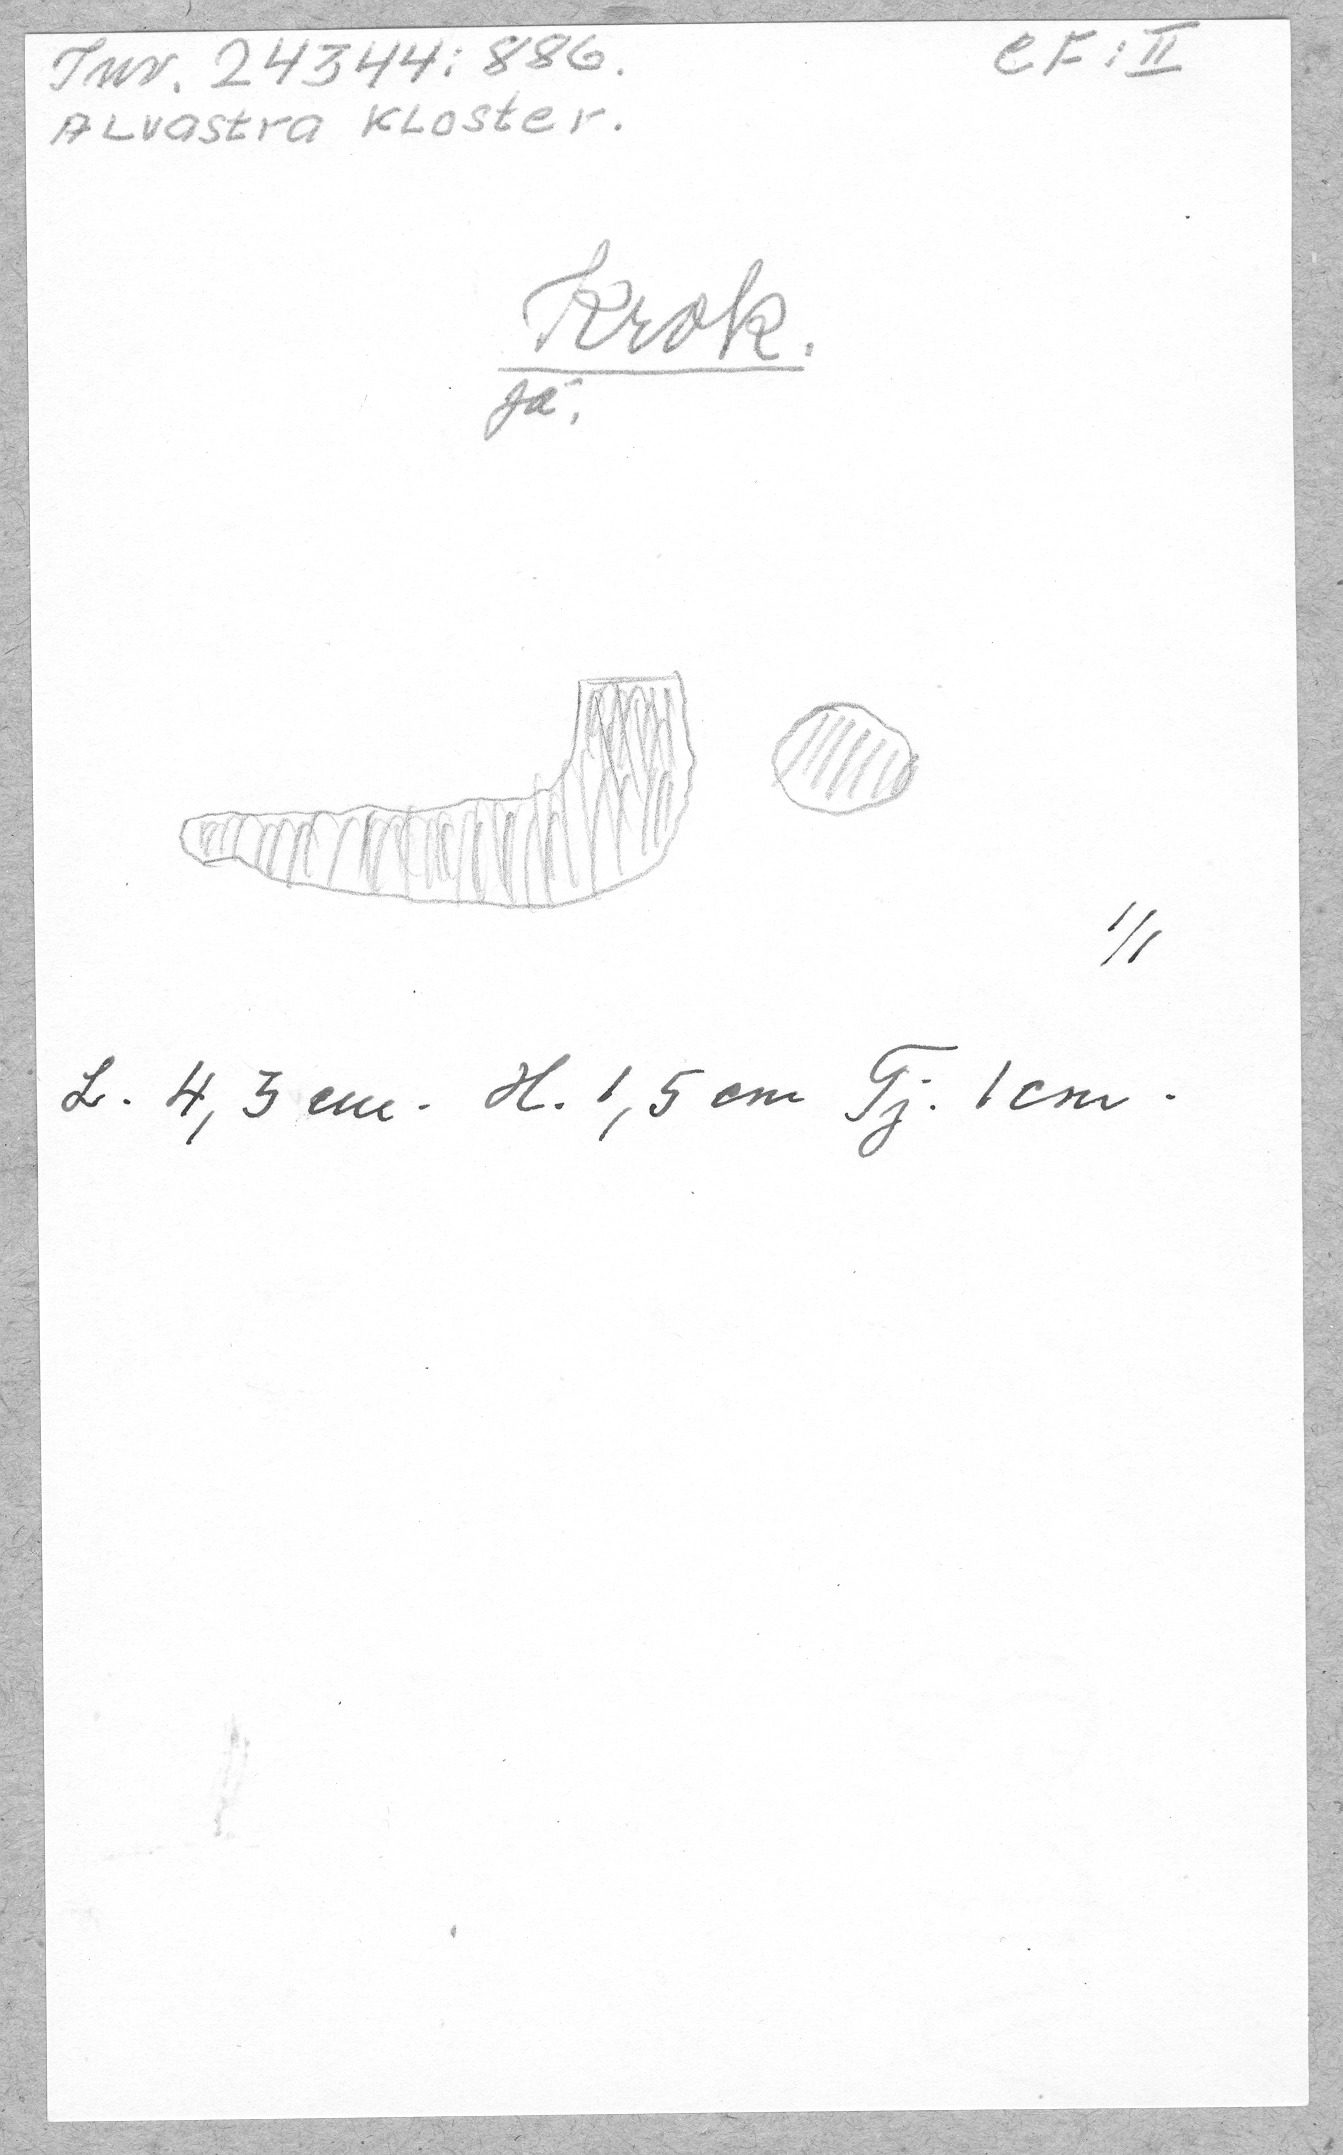 Inv. 24344:886.
CF:II
ALvastra KLoster.
Krok.
Jä.
1/1
L. 4,3 cm. H. 1,5 cm Tj. 1 cm.